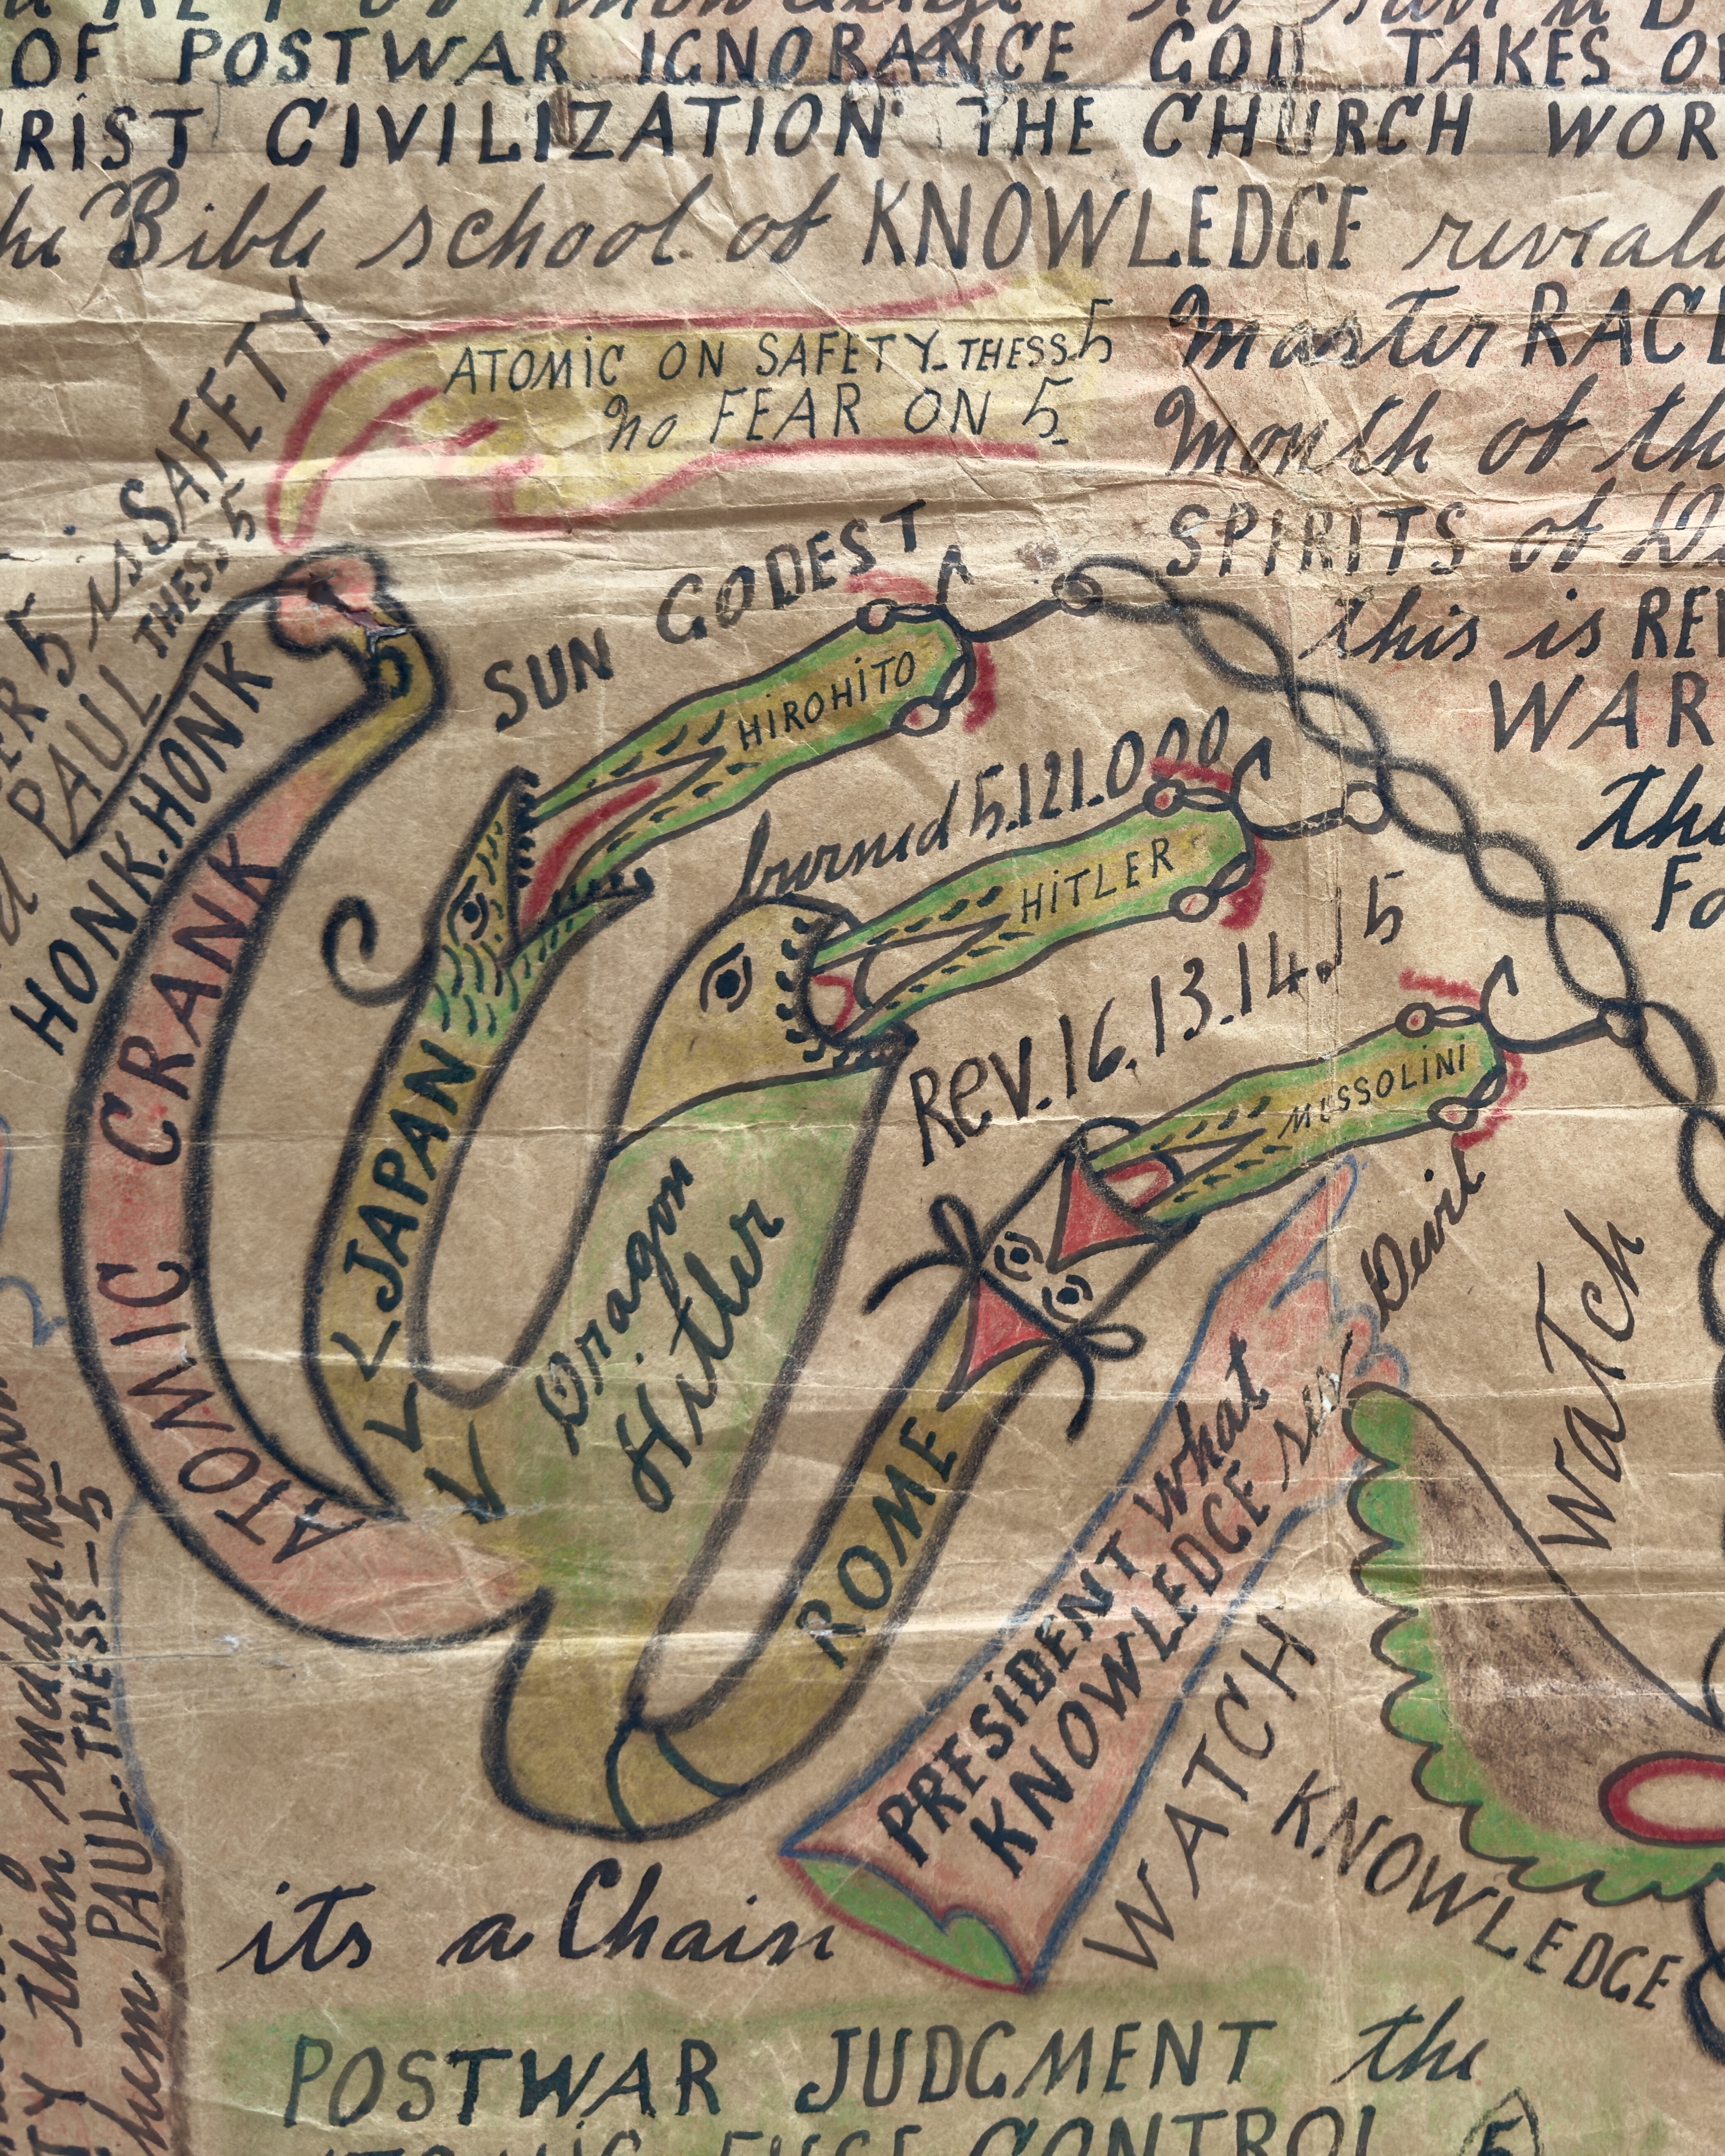 OF POSTWAR IGNORANCE GOD TAKES
RIST CIVILIZATION THE CHURCH WOR
the Bible school of KNOWLEDGE reveals
Master RACE
ATOMIC ON SAFETY THESS 5
no FEAR ON 5
Month of th
SPIRITS of
this is REV
WAR
the
5 is SAFETY
PAUL THESS 5
HONK.HONK
ATOMIC CRANK
SUN GODEST
HIROHITO
burned 5.121.000
HITLER
5
Rev. 16. 13. 14.
MUSSOLINI
JAPAN
Dragon
Hitler
ROME
Devil
PRESIDENT what
KNOWLEDGE
WATCH
WATCH
KNOWLEDGE
PAUL. THESS-5
its a Chain
POSTWAR JUDGMENT the
CONTROL 5